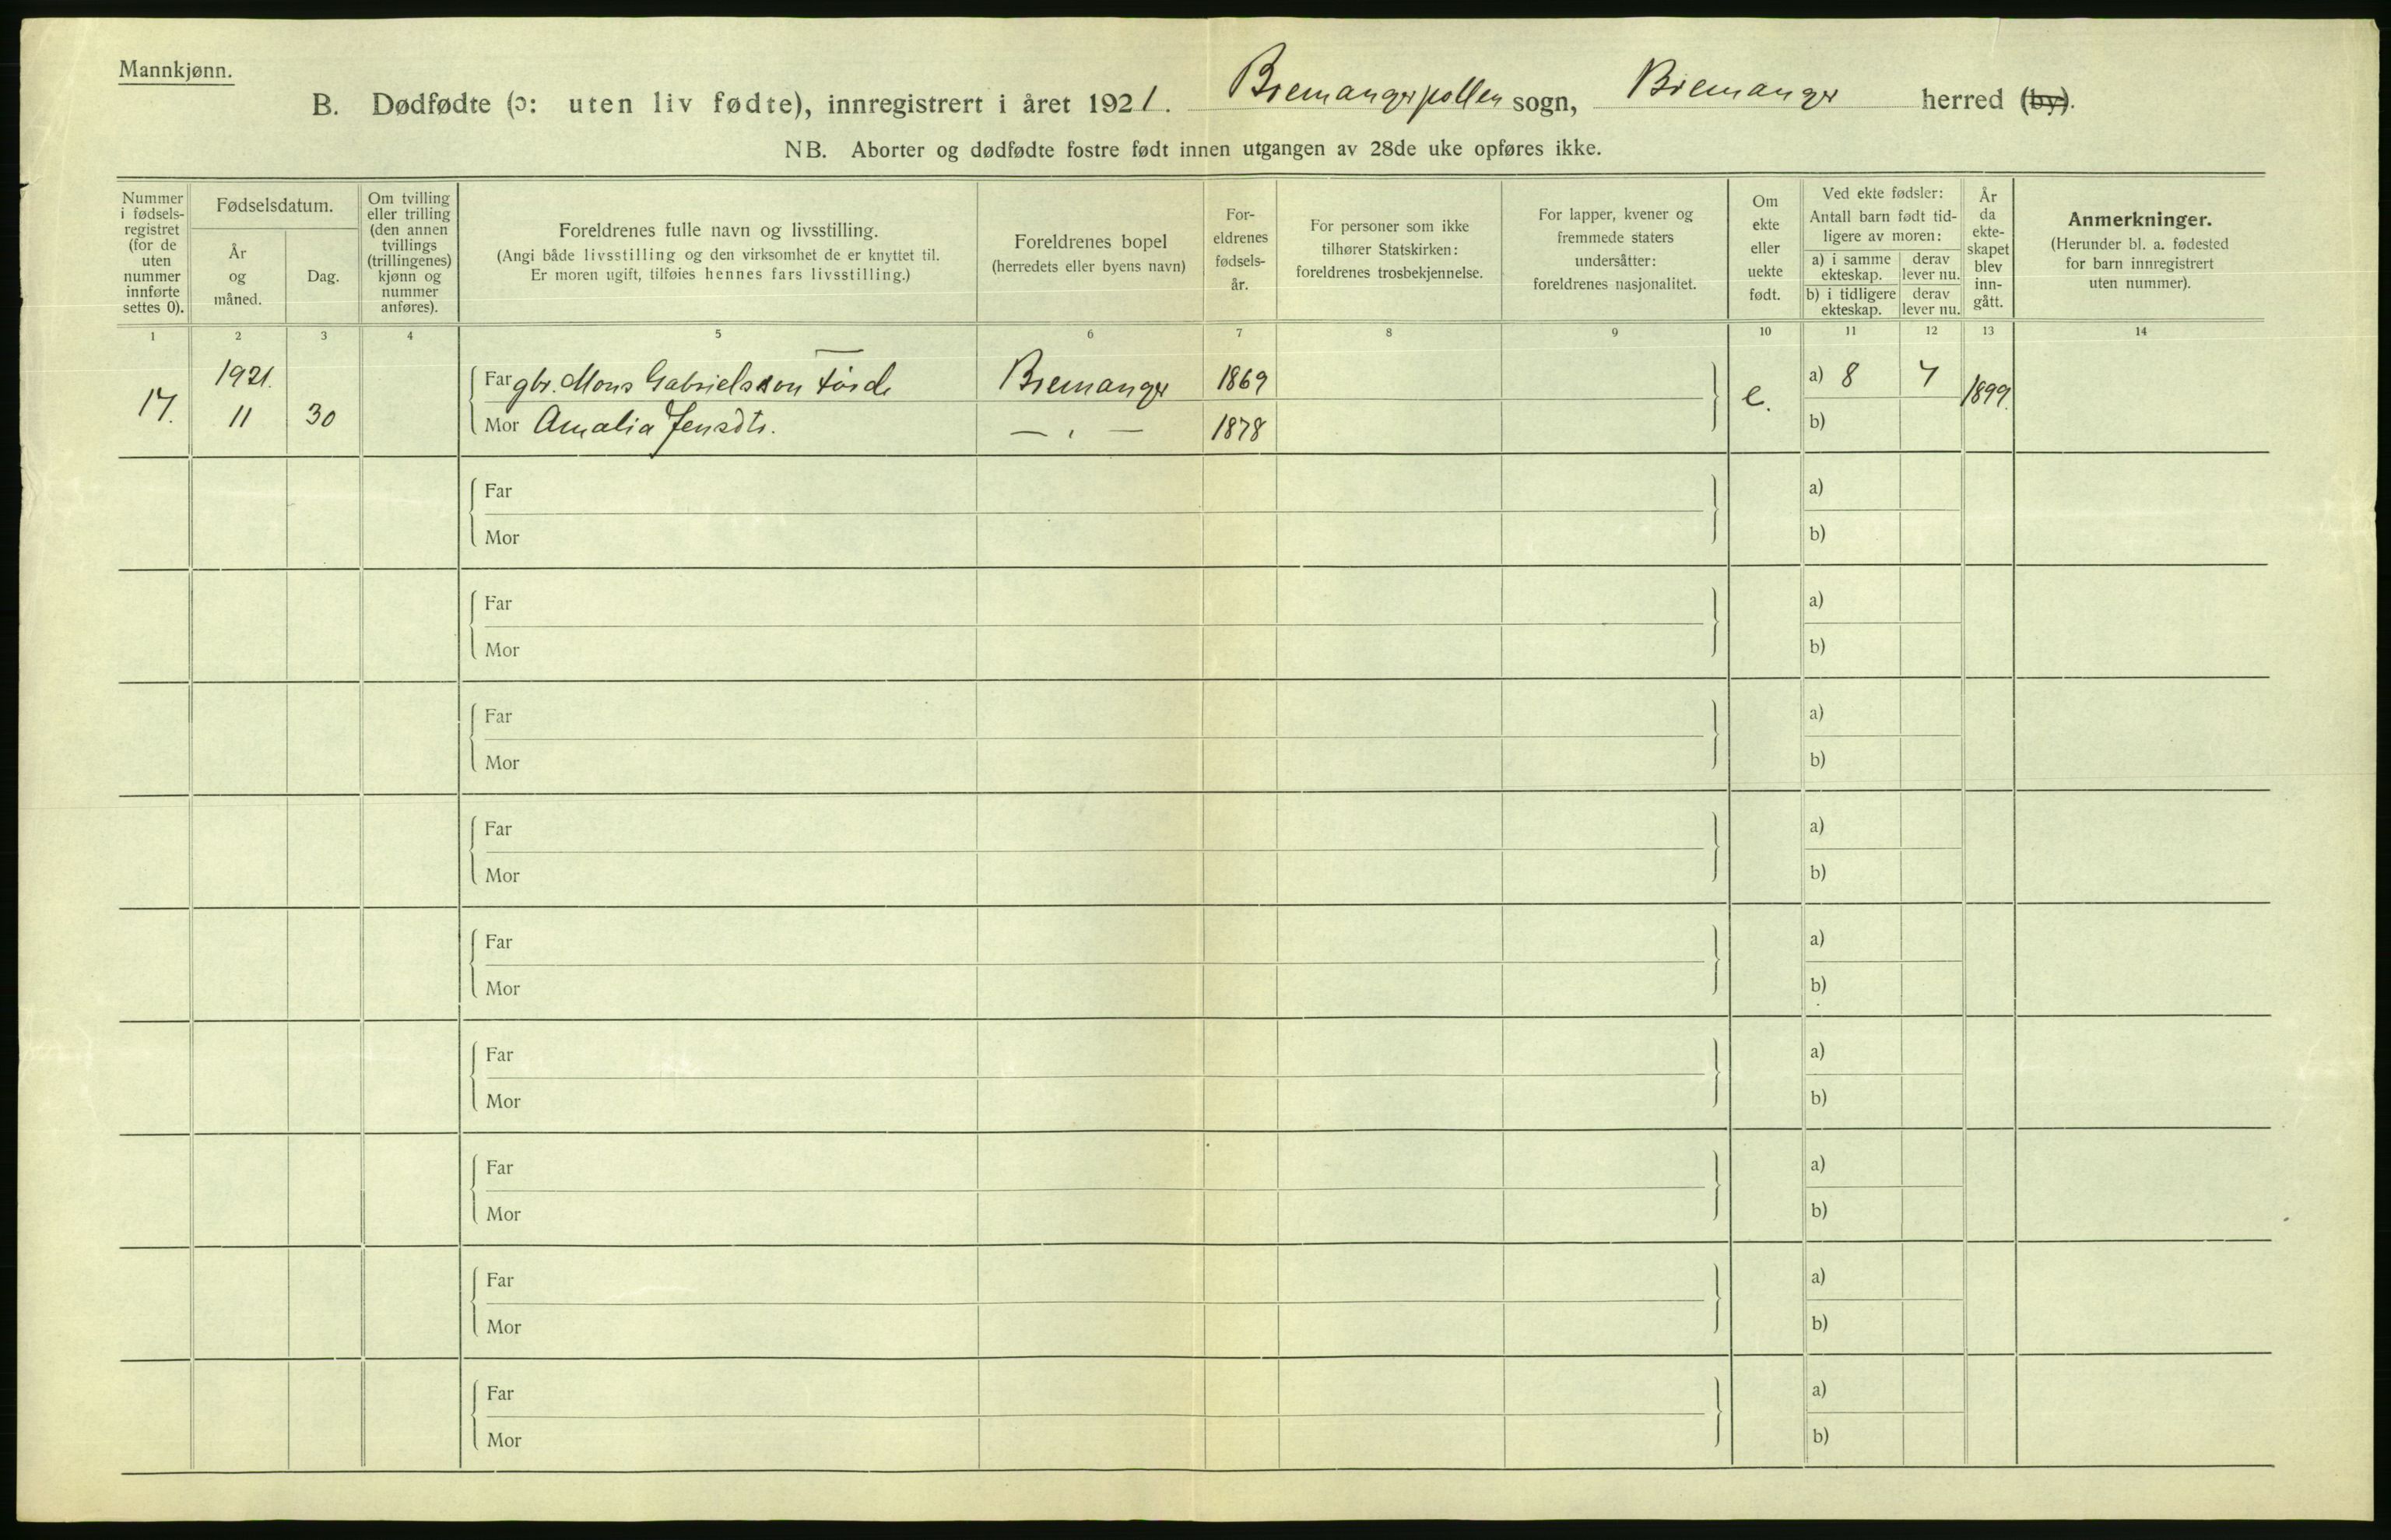 Mannkjønn.
B. Dødfødte (ɔ: uten liv fødte), innregistrert i året 1921. Bremangerpollen sogn, Bremanger herred (by).
NB. Aborter og dødfødte fostre født innen utgangen av 28de uke opføres ikke.
Nummer i fødsels- registret (for de uten nummer innførte settes 0).
Fødselsdatum.
År og måned.
Dag.
Om tvilling eller trilling (den annen tvillings (trillingenes) kjønn og nummer anføres).
Foreldrenes fulle navn og livsstilling.
(Angi både livsstilling og den virksomhet de er knyttet til.
Er moren ugift, tilføies hennes fars livsstilling.)
Foreldrenes bopel
(herredets eller byens navn)
For- eldrenes fødsels- år.
For personer som ikke tilhører Statskirken: foreldrenes trosbekjennelse.
For lapper, kvener og fremmede staters undersåtter: foreldrenes nasjonalitet.
Om ekte eller uekte født.
Ved ekte fødsler:
Antall barn født tid- ligere av moren:
a) i samme ekteskap.
derav lever nu.
b) i tidligere ekteskap.
derav lever nu.
År da ekte- skapet blev inn- gått.
Anmerkninger.
(Herunder bl. a. fødested for barn innregistrert uten nummer).
1 2 3 4 5 6 7 8 9 10 11 12 13 14
17. 1921. 11 30
Far gbr. Mons Gabrielsson Førde Bremanger 1869
Mor Amalia Jensdtr. — " — 1878
e. a) 8 7 1899.
b)
Far a)
Mor b)
Far a)
Mor b)
Far a)
Mor b)
Far a)
Mor b)
Far a)
Mor b)
Far a)
Mor b)
Far a)
Mor b)
Far a)
Mor b)
Far a)
Mor b)